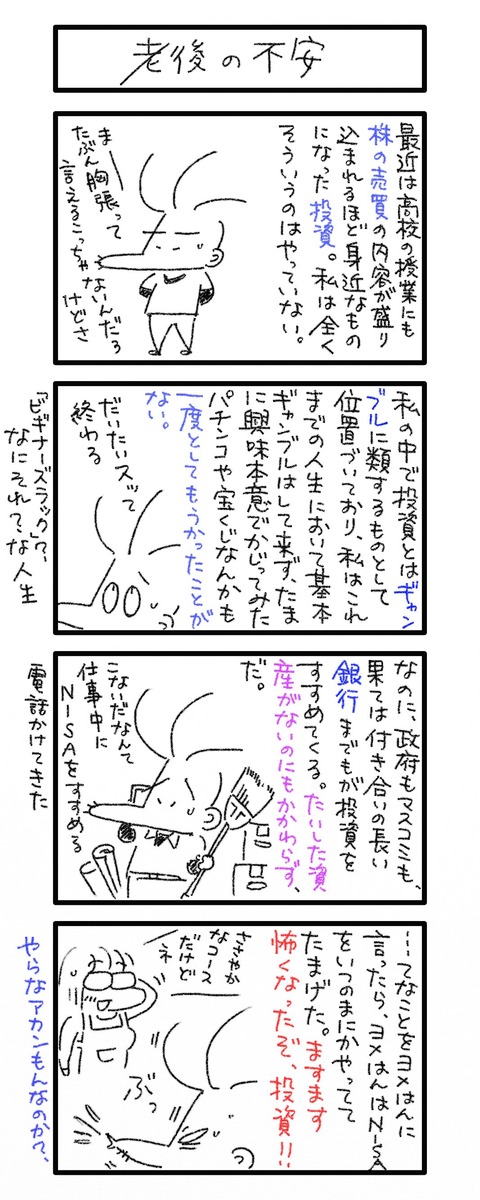 老後の不安
最近は高校の授業にも
株の売買の内容が盛り
込まれるほど身近なもの
になった投資。私は全く
そういうのはやっていない。
ま、
たぶん胸張って
言えるこっちゃないんだろ
けどさ
私の中で投資とはギャン
ブルに類するものとして
位置づいており、私はこれ
までの人生において基本
ギャンブルはして来ず、たま
に興味本意でかじってみた
パチンコや宝くじなんかも
一度としてもうかったことが
ない。
だいたいスッて
終わる
「ビギナーズラック」?、
なにそれ?、な人生
なのに、政府もマスコミも、
果ては付き合いの長い
銀行までもが投資を
すすめてくる。たいした資
産がないのにもかかわらず、
だ。
こないだなんて
仕事中に
NISAをすすめる
電話かけてきた
…てなことをヨメはんに
言ったら、ヨメはんはNISA
をいつのまにかやってて
たまげた。ますます
怖くなったぞ、投資!!
ささやか
なコース
だけど
ネ
ぶっ
やらなアカンもんなのか?、